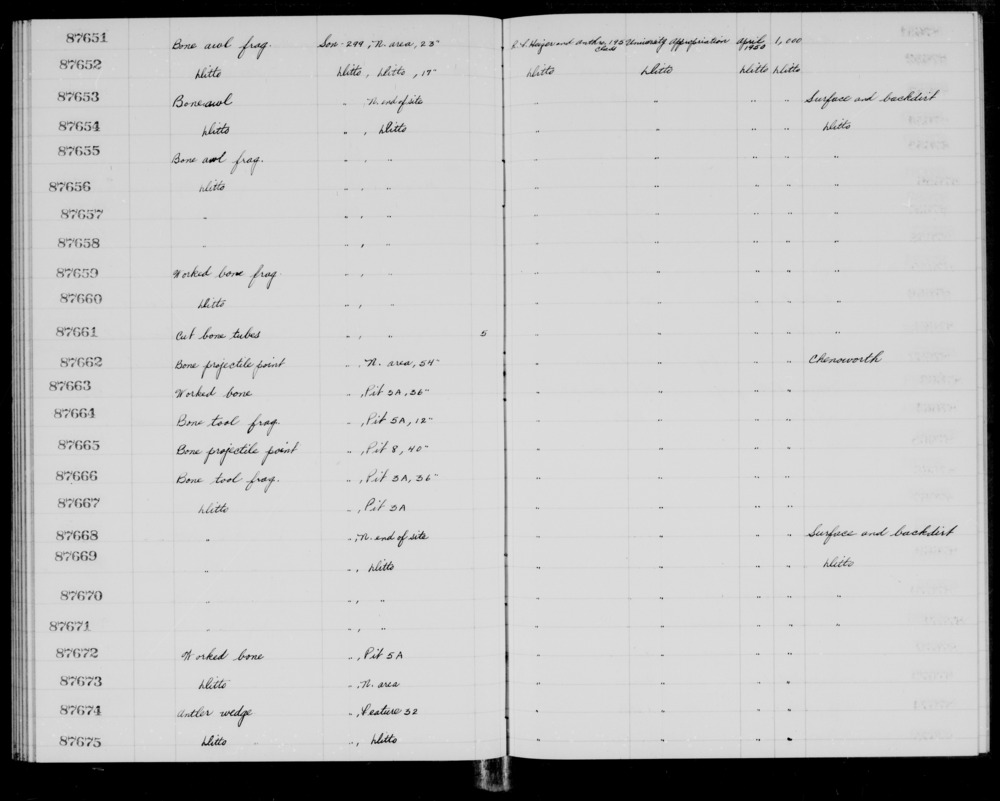 87651 Bone awl frag. Son-299, N. area, 23" R. F. Heizer and Anthro. 195 class University Appropriation April 1950 1,000
87652 Ditto Ditto, Ditto, 17" Ditto Ditto Ditto Ditto
87653 Bone awl " N. end of site " " " " Surface and backdirt
87654 Ditto ", Ditto " " " " Ditto
87655 Bone awl frag. ", " " " " " "
87656 Ditto ", " " " " " "
87657 " ", " " " " " "
87658 " ", " " " " " "
87659 Worked bone frag. ", " " " " " "
87660 Ditto ", " " " " " "
87661 Cut bone tubes ", " 5 " " " " "
87662 Bone projectile point ", N. area, 54" " " " " Chenoworth
87663 Worked bone ", Pit 3A, 36" " " " "
87664 Bone tool frag. ", Pit 5A, 12" " " " "
87665 Bone projectile point ", Pit 8, 40" " " " "
87666 Bone tool frag. ", Pit 3A, 36" " " " "
87667 Ditto ", Pit 3A " " " "
87668 " ", N. end of site " " " " Surface and backdirt
87669 " ", Ditto " " " " Ditto
87670 " ", " " " " " "
87671 " ", " " " " " "
87672 Worked bone ", Pit 5A " " " "
87673 Ditto ", N. area " " " "
87674 Antler wedge ", Feature 32 " " " "
87675 Ditto ", Ditto " " " "